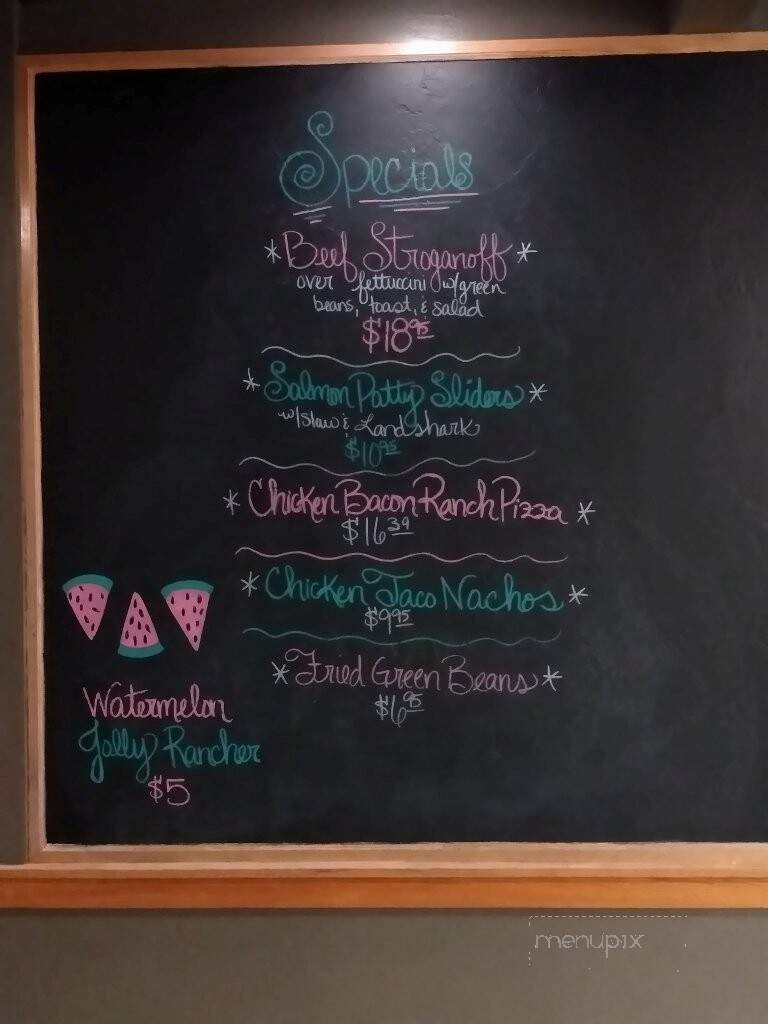 Specials
*Beef Stroganoff*
over fettuccini w/green
beans, toast, & salad
$18.95
*Salmon Patty Sliders*
w/slaw & Landshark
$10.95
*Chicken Bacon Ranch Pizza*
$16.39
*Chicken Taco Nachos*
$9.95
*Fried Green Beans*
$6.95
Watermelon
Jolly Rancher
$5
menupix